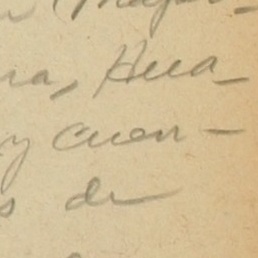 ra, Hua-
y cuen-
s de